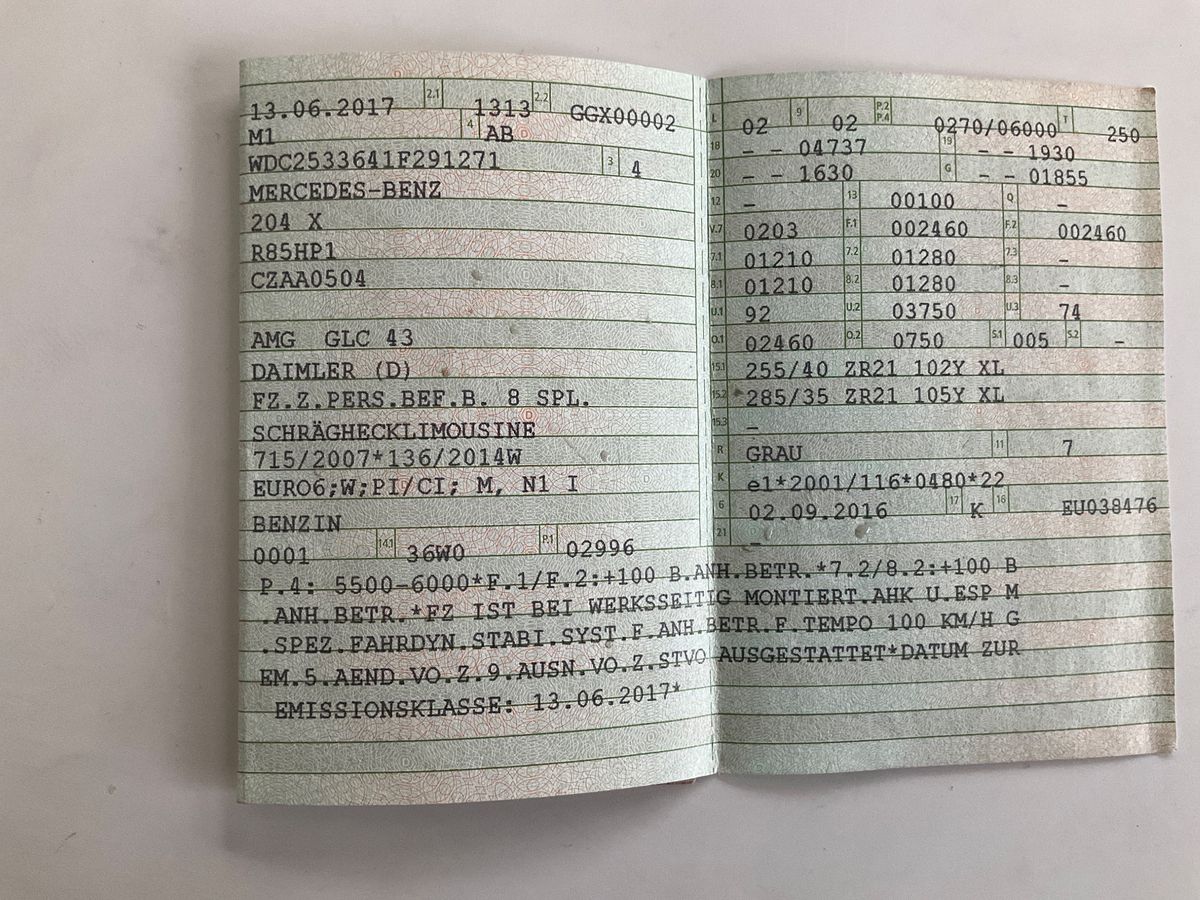 13.06.2017 2.1 1313 2.2 GGX00002
M1 4 AB
WDC2533641F291271 3 4
MERCEDES-BENZ
204 X
R85HP1
CZAA0504
AMG GLC 43
DAIMLER (D)
FZ.Z.PERS.BEF.B. 8 SPL.
SCHRÄGHECKLIMOUSINE
715/2007*136/2014W
EURO6;W;PI/CI; M, N1 I
BENZIN
0001 14.1 36W0 P.1 02996
L 02 9 02 P.2 P.4 0270/06000 T 250
18 – – 04737 19 – – 1930
20 – – 1630 G – – 01855
12 – 13 00100 Q –
V.7 0203 F.1 002460 F.2 002460
7.1 01210 7.2 01280 7.3 –
8.1 01210 8.2 01280 8.3 –
U.1 92 U.2 03750 U.3 74
O.1 02460 O.2 0750 S.1 005 S.2 –
15.1 255/40 ZR21 102Y XL
15.2 285/35 ZR21 105Y XL
15.3 –
R GRAU 11 7
K e1*2001/116*0480*22
6 02.09.2016 17 K 16 EU038476
21 –
P.4: 5500-6000*F.1/F.2:+100 B.ANH.BETR.*7.2/8.2:+100 B
.ANH.BETR.*FZ IST BEI WERKSSEITIG MONTIERT.AHK U.ESP M
.SPEZ.FAHRDYN.STABI.SYST.F.ANH.BETR.F.TEMPO 100 KM/H G
EM.5.AEND.VO.Z.9.AUSN.VO.Z.STVO AUSGESTATTET*DATUM ZUR
EMISSIONSKLASSE: 13.06.2017*